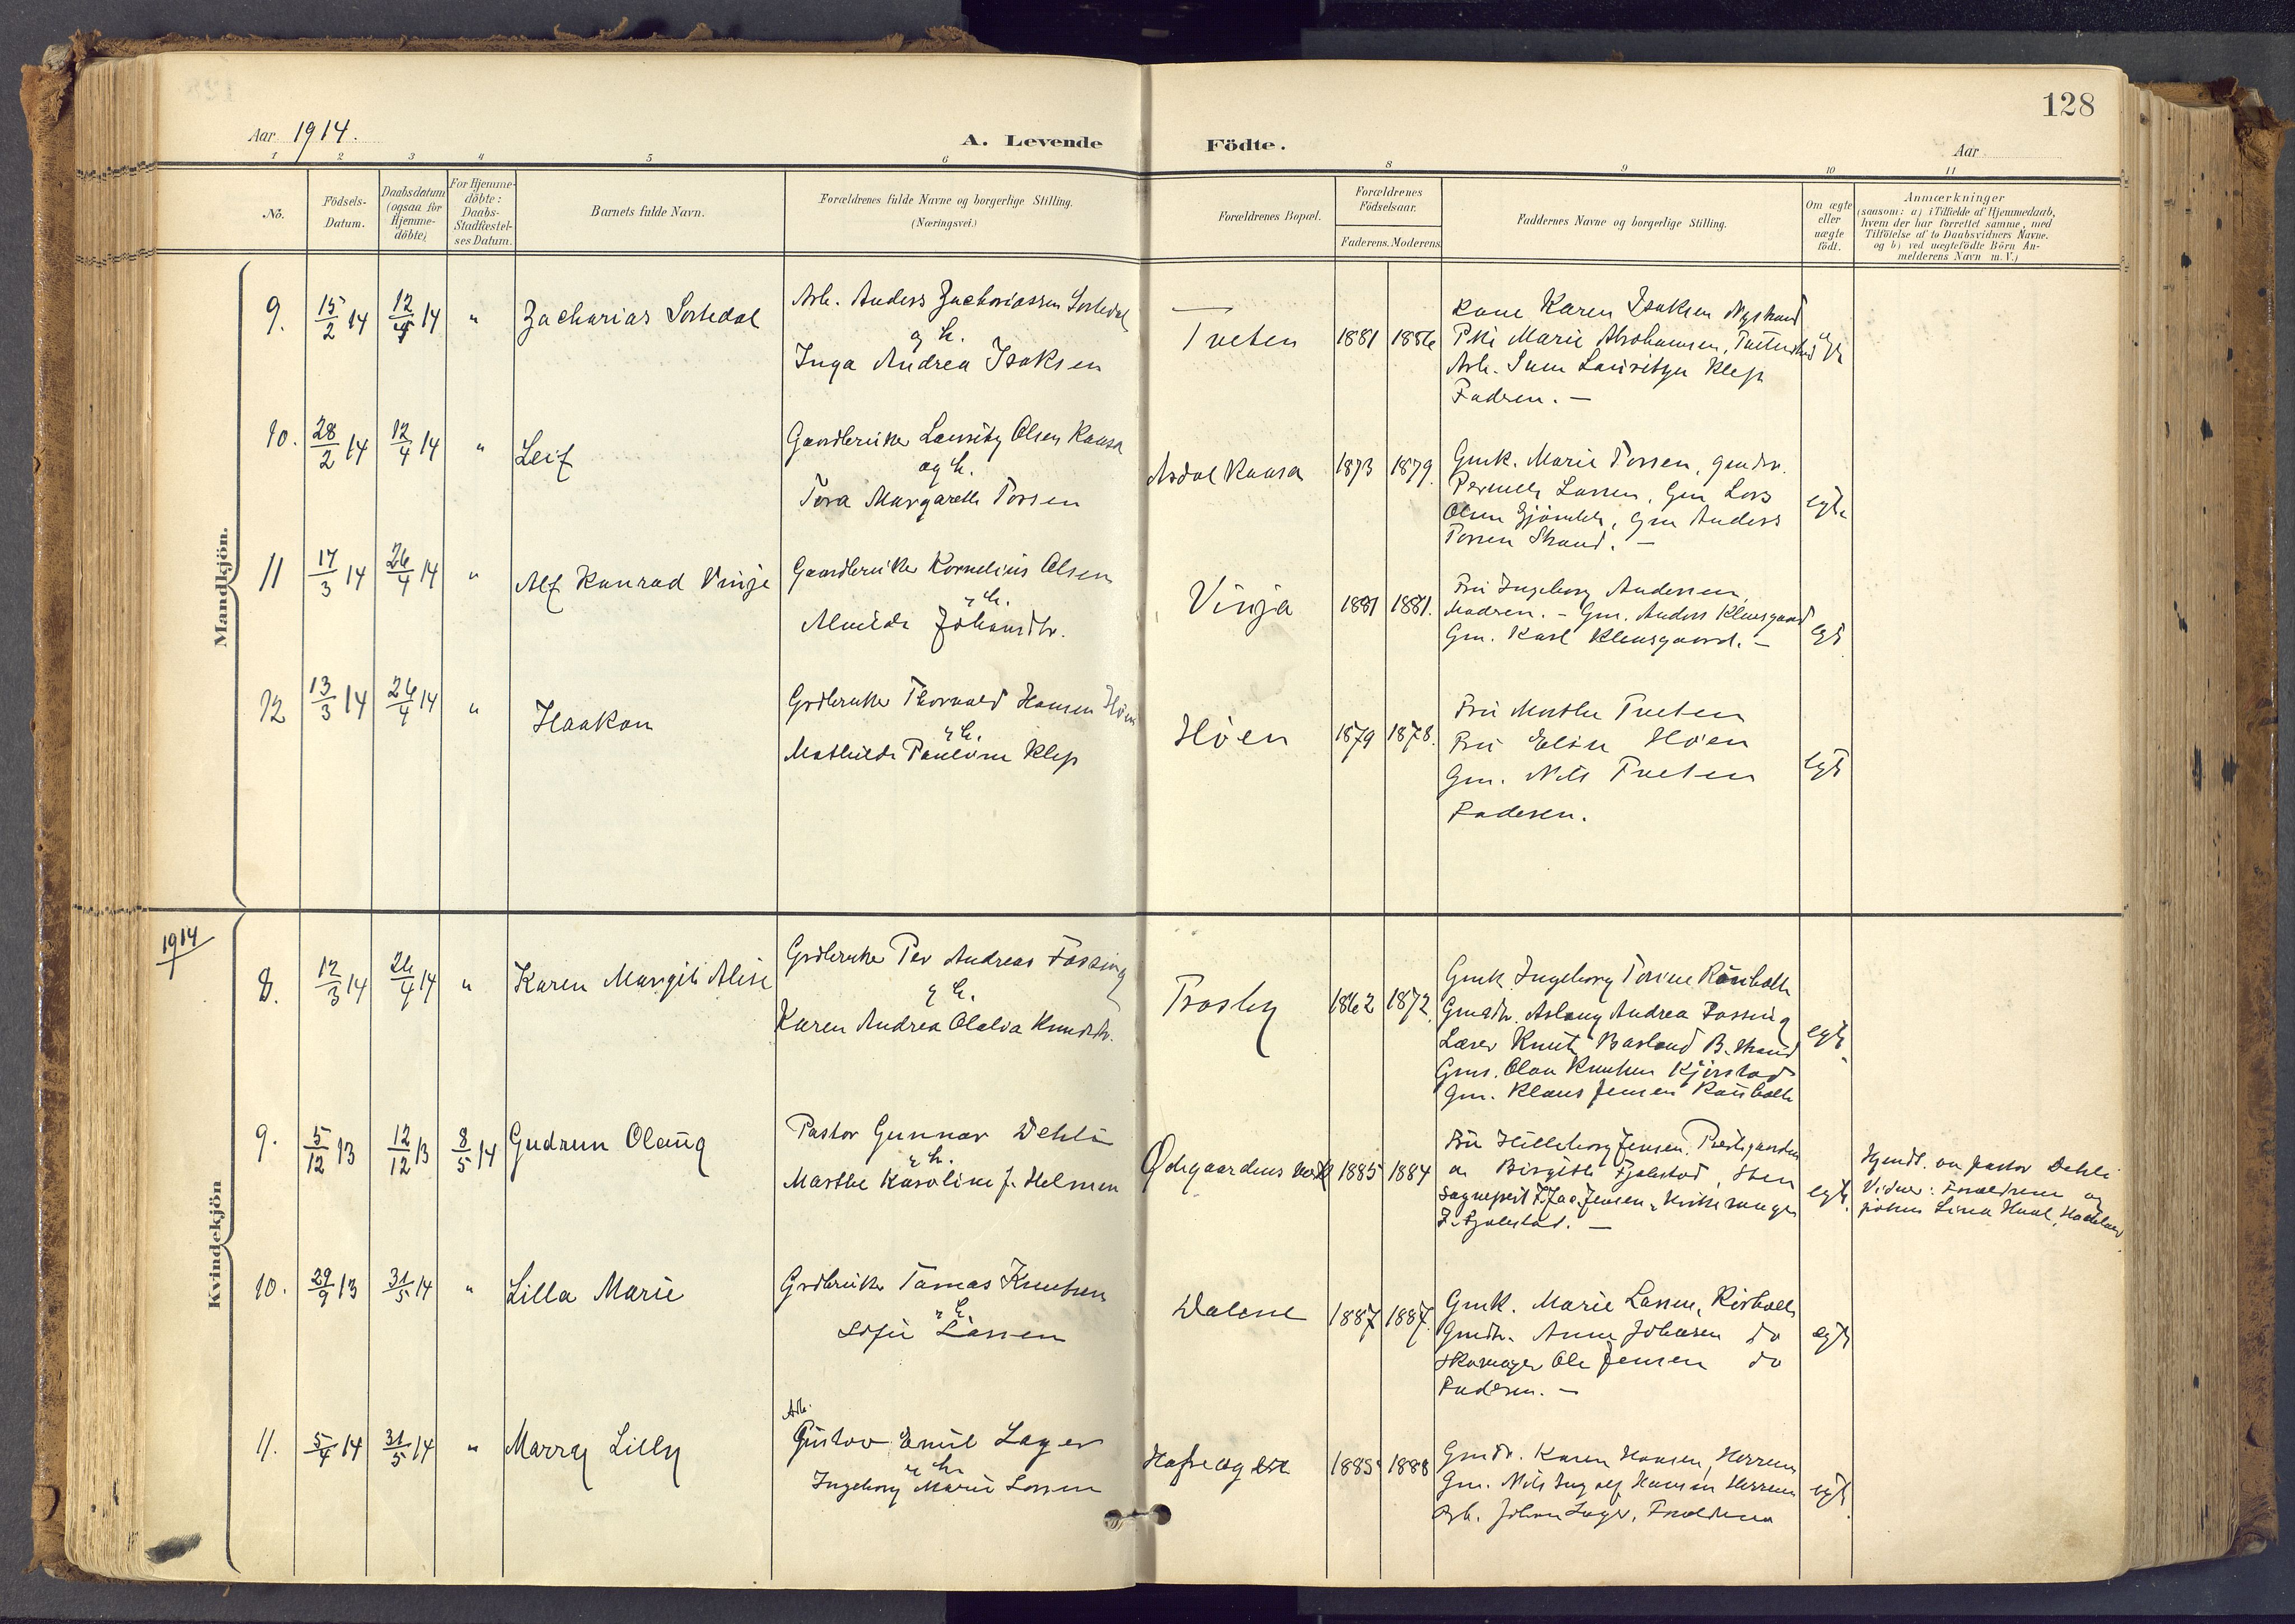 128
Aar 1914.
A. Levende Födte.
Aar
1 2 3 4 5 6 8 9 10 11
No.
Födsels-
Datum.
Daabsdatum
(ogsaa for
Hjemme-
döbte)
For Hjemme-
döbte:
Daabs-
Stadfæstel-
ses Datum.
Barnets fulde Navn.
Forældrenes fulde Navne og borgerlige Stilling.
(Næringsvei.)
Forældrenes Bopæl.
Forældrenes
Födselsaar.
Faderens. Moderens
Faddernes Navne og borgerlige Stilling.
Om ægte
eller
uægte
födt.
Anmærkninger
(saasom: a) i Tilfælde af Hjemmedaab,
hvem der har forrettet samme, med
Tilföielse af to Daabsvidners Navne.
og b) ved uægtefödte Börn An-
melderens Navn m. V.)
Mandkjön.
9. 15/2 14 12/4 14 " Zacharias Sortedal
Arb. Anders Zachariassen Sortedal
og h.
Inga Andrea Isaksen
Tveten 1881 1886
Kone Karen Isaksen Nystrand
Pki Marie Abrahamsen,
Arb. Lauritzen Klep
Fadren. —
10. 28/2 14 12/4 14 " Leif
Gaardbruker Lauritz Olsen Raasa
og h.
Tora Margarethe Torsen
Asdal Raasa 1873 1879.
Gmk. Marie Torsen, gmdtr.
Pernille Larsen, Gm Lars
Olsen, Gm Anders
Torsen Strand. —
egte
11 17/3 14 26/4 14 " Alf Konrad Vinje
Gaardbruker Kornelius Olsen
og h.
Alvilde Johansdtr.
Vinja 1881 1881.
Fru Ingeborg Andersen,
Modren. – Gm. Anders Klevsgaard
Gm. Karl Klevsgaard. —
egte
12 13/3 14 26/4 14 " Haakon
Grdbruker Thorvald Hansen Höen
og h.
Mathilde Pauline Klep
Höen 1879 1878.
Fru Marthe Tveten
Fru Elise Höen
Gm. Nils Tveten
Faderen.
egte
1914
Kvindekjön
8. 12/3 14 26/4 14 " Karen Margit Alise
Grdbruker Per Andreas Fossing
og h.
Karen Andrea Olalia Knudsdtr.
Trosby 1862 1872.
Gmk. Ingeborg Torine Rönholt
Gmdtr. Aslaug Andrea Fossing
Lærer Knut Basland B. Strand
Gms. Olav Knutsen Kjerstad
Gm. Klaus Jensen Rönholt
egte
9. 5/12 13 12/12 13 8/5 14 Gudrun Olaug
Pastor Gunnar Dehli
og h.
Marthe Karoline J. Helmen
Ødegaardens verk 1885 1884
Fru Hilleborg Jensen, Prestgaarden
Birgitte Fjalestad,
Sogneprest F. Jac. Jensen, Kirkesanger
Fjalestad. —
egte.
Hjemdt. av pastor Dehli
Vidner: Forældrene og
jöken Lina
10. 29/9 13 31/5 14 " Lilla Marie
Grdbruker Tomas Knutsen
og h.
Sofie Larsen
Dalene 1887 1887.
Gmk. Marie Larsen, Risholt
Gmdtr. Anne Johnsen do
Skomager Ole Jensen do
Faderen. —
egte
11. 5/4 14 31/5 14 " Marry Lilly
Arb.
Gustav Emil Lager
og h.
Ingeborg Marie Larsen
1885 1888
Gmdtr. Karen Hansen, Herrum
Gm. Nils Ingolf Hansen Herrum
Arb. Johan Lager, Forældrene
egte.